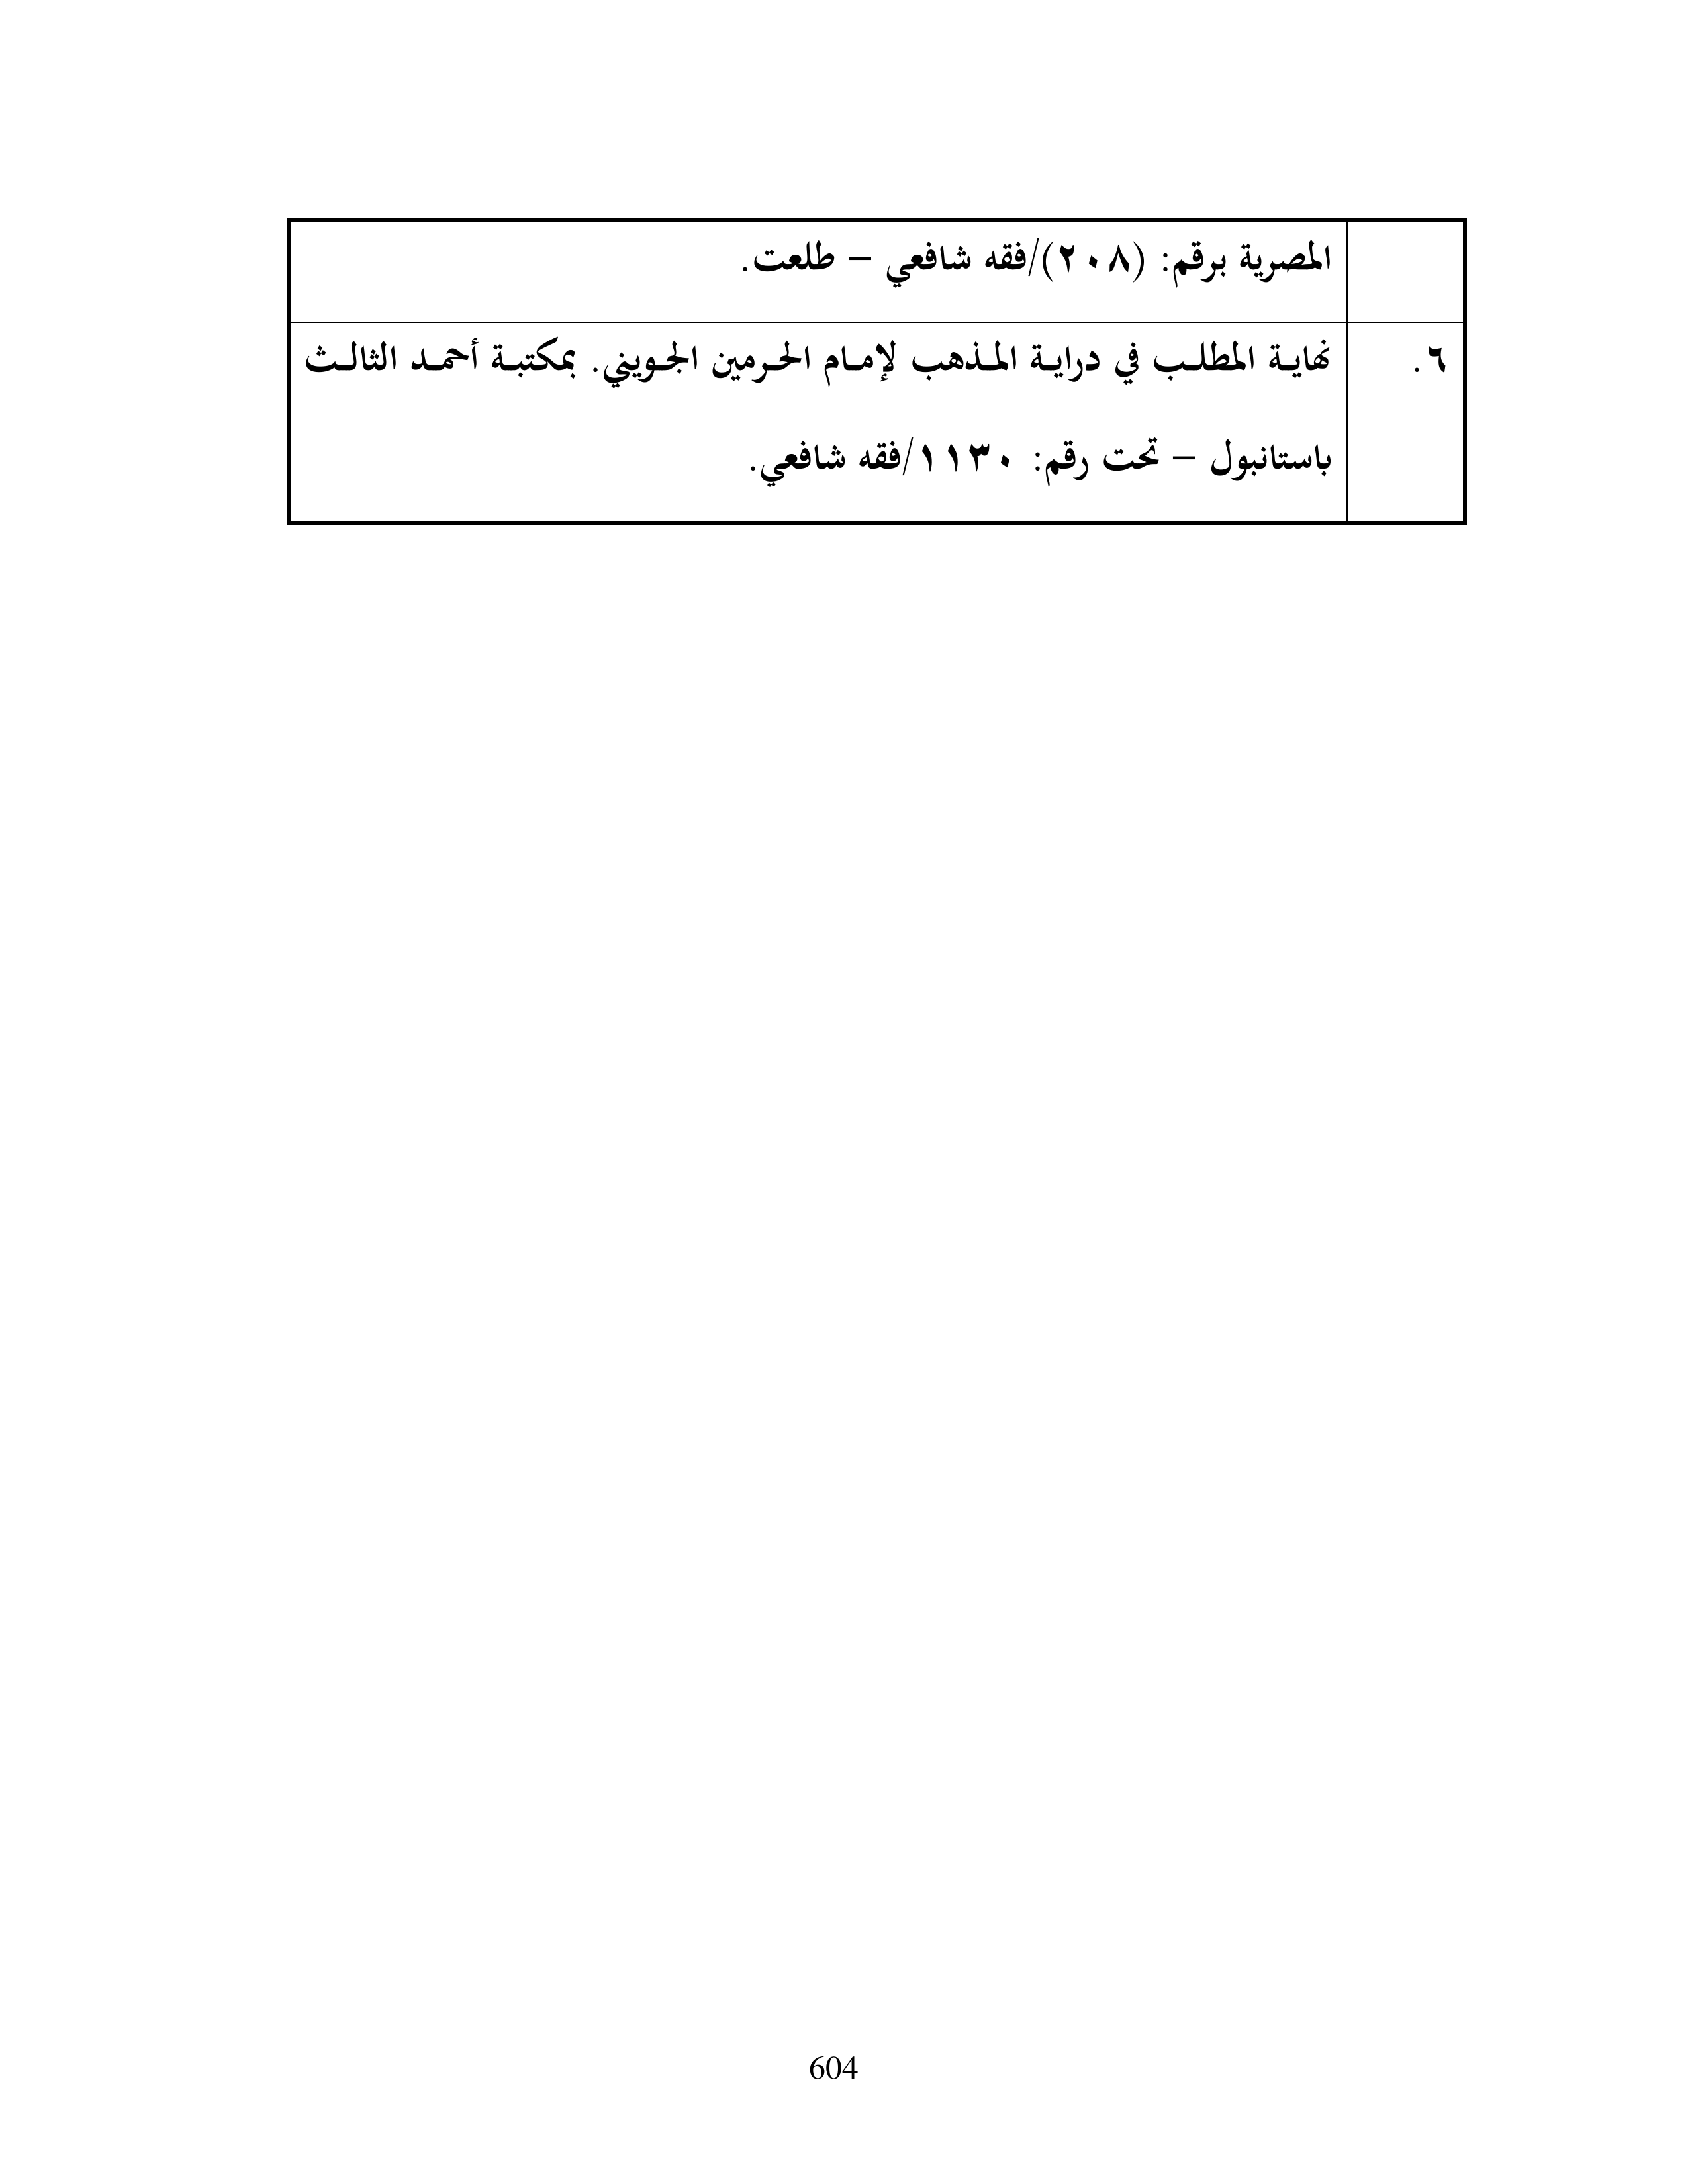 المصرية برقم: (٢٠٨)/فقه شافعي – طلعت.
٦. نهاية المطلب في دراية المذهب لإمام الحرمين الجويني. بمكتبة أحمد الثالث
باستانبول – تحت رقم: ١١٣٠/فقه شافعي.
604